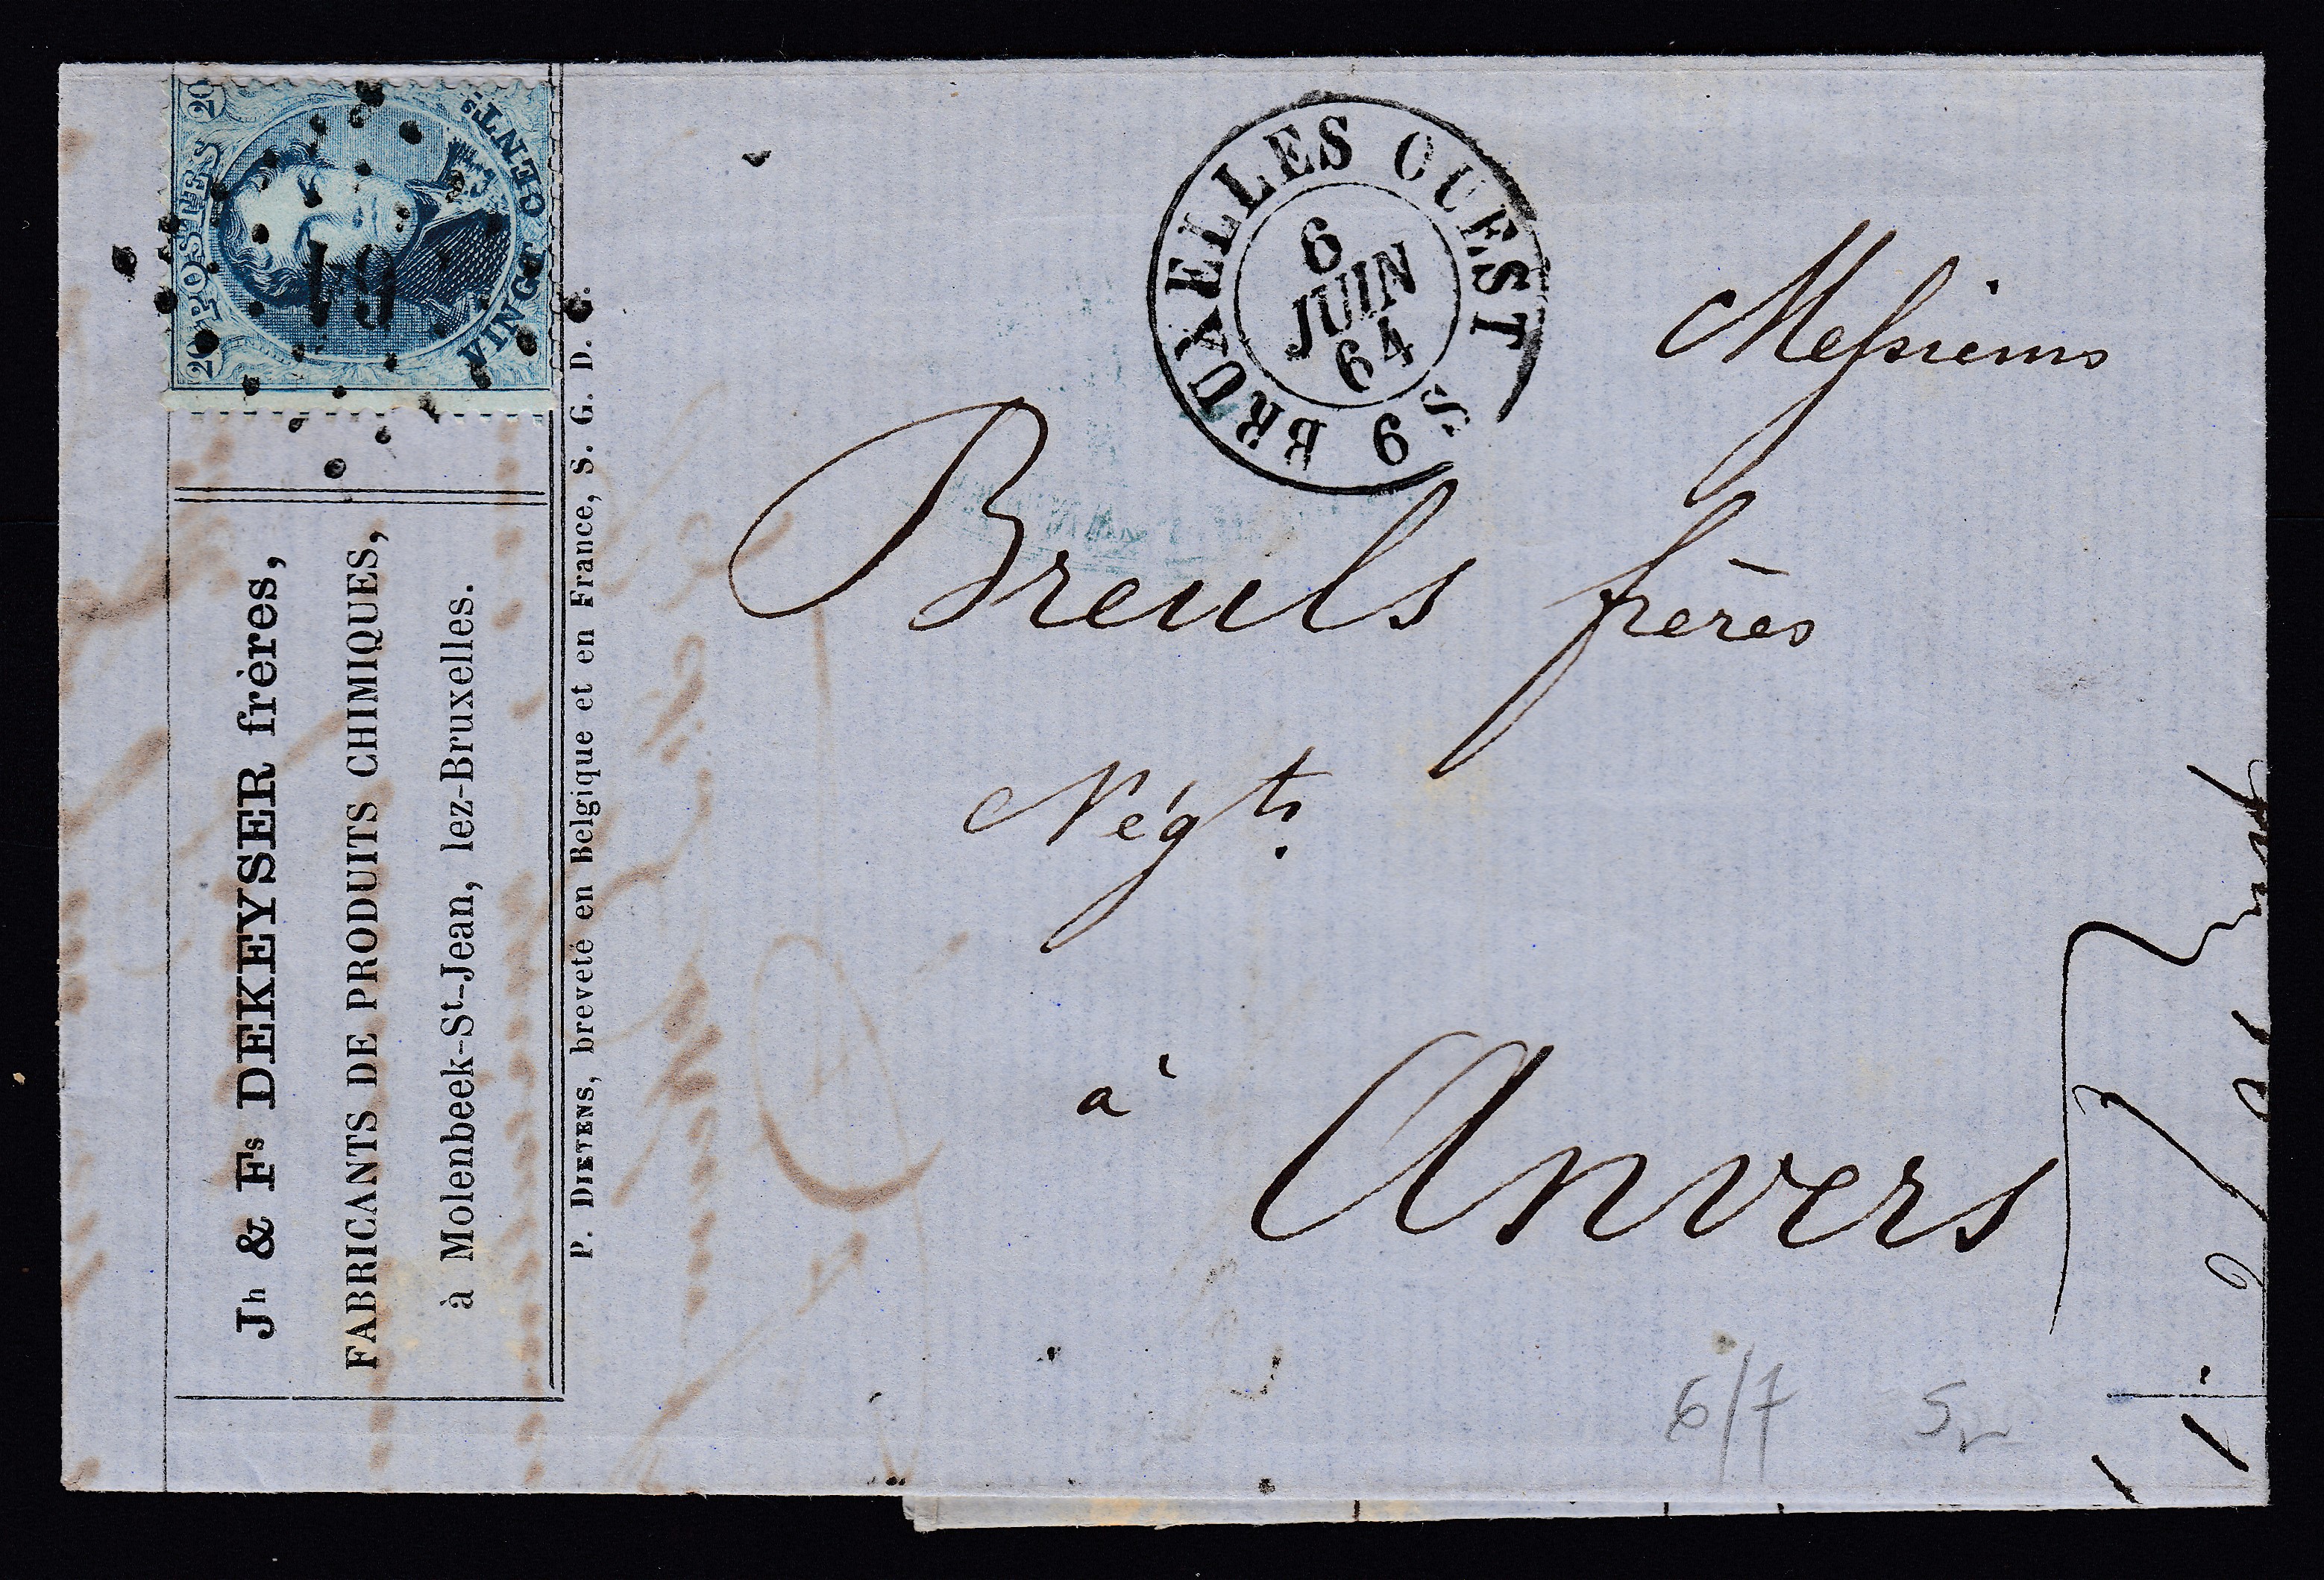 POSTES
20
20
VINGT CENTs
61
BRUXELLES OUEST
6
JUIN
64
9 S
Messieurs
Breuls frères
Négts.
à
Anvers
Jh & Fs DEKEYSER frères,
FABRICANTS DE PRODUITS CHIMIQUES,
à Molenbeek-St-Jean, lez-Bruxelles.
P. DIETENS, breveté en Belgique et en France, S. G. D. G.
6/7